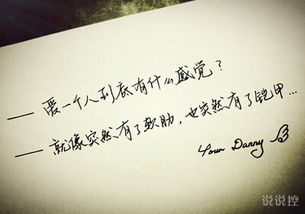 —— 爱一个人到底有什么感觉？
—— 就像突然有了软肋，也突然有了铠甲…
Your Danny
说说控